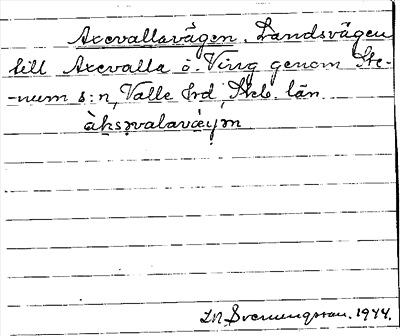 Axevallavägen. Landsvägen
till Axevalla o. Ving genom Ste-
-num s:n, Valle hrd, Skb. län
àksvalavǽyən
Svenungsson. 1944.